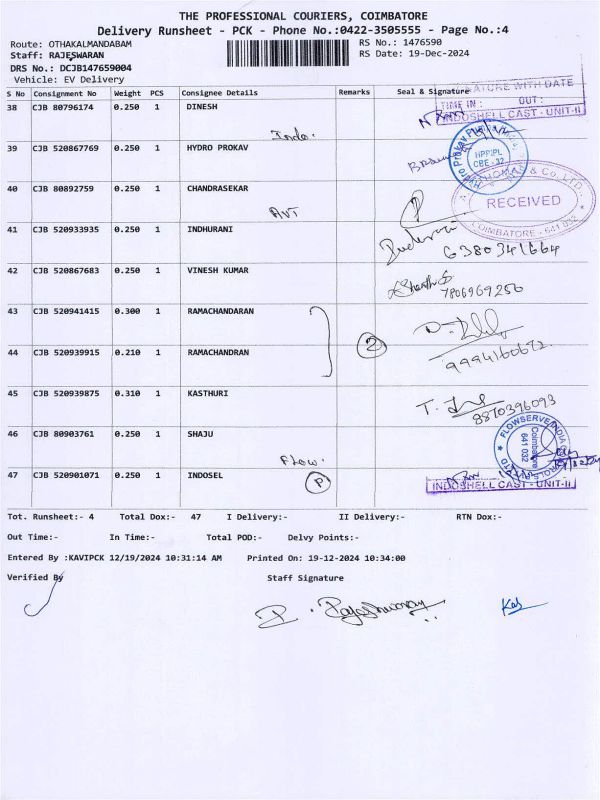 THE PROFESSIONAL COURIERS, COIMBATORE
Delivery Runsheet - PCK - Phone No.:0422-3505555 - Page No.:4
Route: OTHAKALMANDABAM
RS No.: 1476590
Staff: RAJESWARAN
RS Date: 19-Dec-2024
DRS No.: DCJB147659004
Vehicle: EV Delivery
S No Consignment No Weight PCS Consignee Details Remarks Seal & Signature
SIGNATURE WITH DATE
TIME IN : OUT :
INDOSHELL CAST - UNIT-II
38 CJB 80796174 0.250 1 DINESH
Indo.
39 CJB 520867769 0.250 1 HYDRO PROKAV
HPPIPL
CBE - 32
40 CJB 80892759 0.250 1 CHANDRASEKAR
AVT
& Co. LTD.
RECEIVED
COIMBATORE - 641 032
41 CJB 520933935 0.250 1 INDHURANI
6380341664
42 CJB 520867683 0.250 1 VINESH KUMAR
7806969256
43 CJB 520941415 0.300 1 RAMACHANDARAN
2
44 CJB 520939915 0.210 1 RAMACHANDRAN
9994160672
45 CJB 520939875 0.310 1 KASTHURI
8870396093
46 CJB 80903761 0.250 1 SHAJU
Flow.
FLOWSERVE INDIA CONTROLS PVT LTD
Coimbatore
641 032
47 CJB 520901071 0.250 1 INDOSEL
P
INDOSHELL CAST - UNIT-II
Tot. Runsheet:- 4 Total Dox:- 47 I Delivery:- II Delivery:- RTN Dox:-
Out Time:- In Time:- Total POD:- Delvy Points:-
Entered By :KAVIPCK 12/19/2024 10:31:14 AM Printed On: 19-12-2024 10:34:00
Verified By Staff Signature